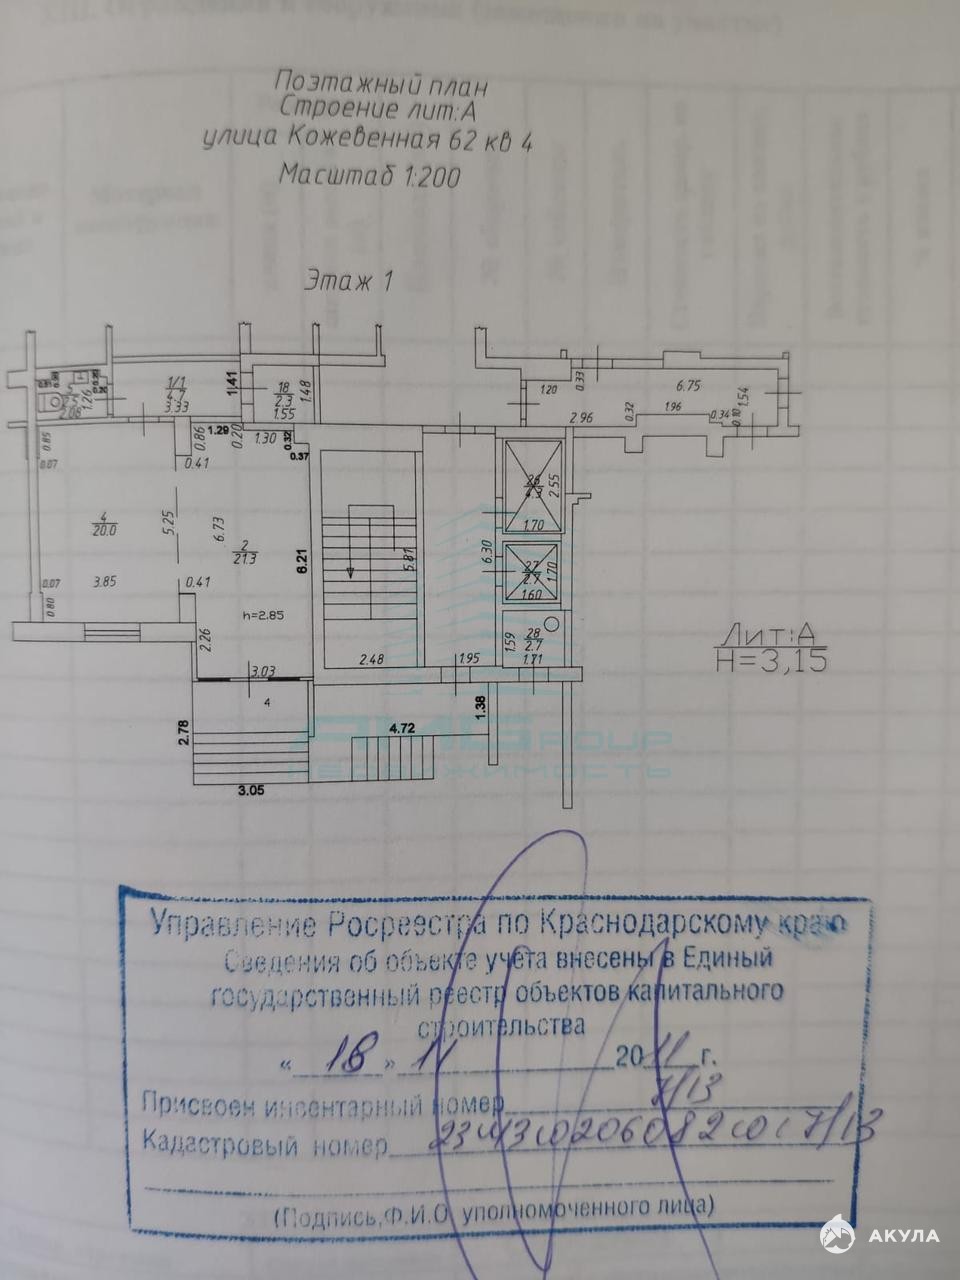 Поэтажный план
Строение лит:А
улица Кожевенная 62 кв 4
Масштаб 1:200
Этаж 1
1/1
4.7
3.33
1.41
18
2.3
1.55
1.48
1.20
0.33
6.75
1.54
2.96
0.32
1.96
0.34
0.10
2.08
1.26
0.85
0.07
0.86
1.29
0.20
1.30
0.32
0.37
0.41
4
20.0
5.25
6.73
2
21.3
6.21
5.81
6.30
26
4.3
2.55
1.70
27
2.7
1.70
1.60
0.07
3.85
0.41
0.80
h=2.85
2.26
3.03
2.48
1.95
1.59
28
2.7
1.71
Лит:А
Н=3,15
4
2.78
3.05
4.72
1.38
AMGROUP
НЕДВИЖИМОСТЬ
Управление Росреестра по Краснодарскому краю
Сведения об объекте учета внесены в Единый
государственный реестр объектов капитального
строительства
« 18 » 11 2011 г.
Присвоен инвентарный номер
Кадастровый номер
(Подпись,Ф.И.О. уполномоченного лица)
АКУЛА